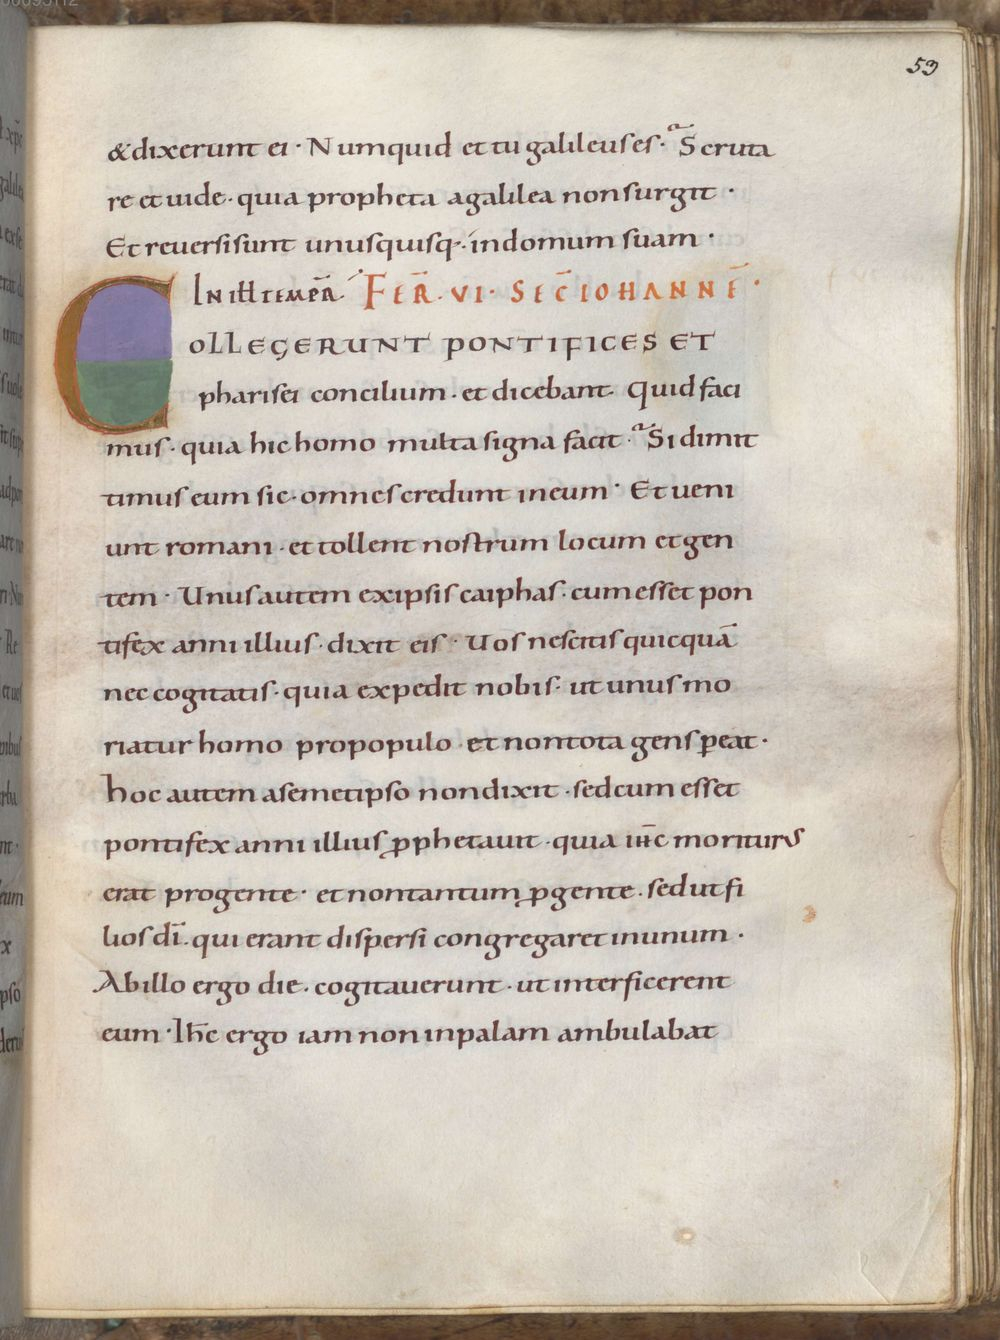 53
&dixerunt ei · Numquid et tu galileus es · Scruta
re et uide · quia propheta a galilea non surgit ·
Et reuersi sunt unusquisq· in domum suam ·
In ill temp̄r FER̄ · VI · SEC̄ IOHANNĒ ·
COLLEGERUNT PONTIFICES ET
pharisei concilium · et dicebant · Quid faci
mus · quia hic homo multa signa facit · Si dimit
timus eum sic · omnes credunt in eum · Et ueni
unt romani · et tollent nostrum locum et gen
tem · Unus autem ex ipsis caiphas · cum esset pon
tifex anni illius · dixit eis · Uos nescitis quicquā
nec cogitatis · quia expedit nobis · ut unus mo
riatur homo pro populo · et non tota gens p̱eat ·
hoc autem a semetipso non dixit · sed cum esset
pontifex anni illius p̱phetauit · quia ih̄c moriturus
erat pro gente · et non tantum p̱ gente · sed ut fi
lios dī · qui erant dispersi congregaret in unum ·
Ab illo ergo die · cogitauerunt · ut interficerent
eum · Ih̄c ergo iam non in palam ambulabat